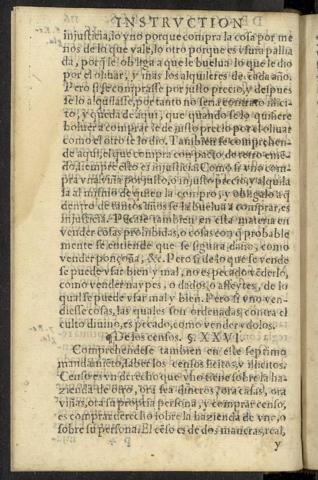 INSTRVCTION
injusticia, lo vno porque compra la cosa por me
nos de lo que vale, lo otro porque es vsura pallia
da, porq̃ se obliga a que le buelua lo que le dio
por el oliuar, y mas los alquileres de cada año.
Pero si se comprasse por justo precio, y despues
se lo alquilasse, por tanto no sería contrato ilici-
to, y queda de aqui, que quando se lo quisiere
boluer a comprar le de justo precio por el oliuar
como el otro se lo dio. Tambien se comprehen-
de aqui, el que compra con pacto, de retro emẽ-
do, siempre esto es injusticia. Como si vno com-
pra vna viña por justo, o injusto precio, y alquila
la al mismo de quien la compro, y obligalo a q̃
dentro de tantos años se la buelua a comprar, es
injusticia. Pecase tambien en esta materia en
vender cosas prohibidas, o cosas con q̃ probable
mente se entiende que se siguira daño, como
vender ponçoña, &c. Pero si de lo que se vende
se puede vsar bien y mal, no es pecado vẽderlo,
como vender naypes, o dados, o afeytes, de lo
qual se puede vsar mal y bien. Pero si vno ven-
diesse cosas, las quales son ordenadas, contra el
culto diuino, es pecado, como vender ydolos.
¶De los censos. §. XXVI.
Comprehendese tambien en este septimo
mandamiẽto, saber los censos licitos, y ilicitos.
Censo es vn derecho que vno tiene sobre la ha-
zienda de otro, ora sea dineros, ora casas, ora
viñas, ora su propria persona, y comprar censo,
es comprar derecho sobre la hazienda de vno, o
sobre su persona. El cẽso es de dos maneras, real,
y